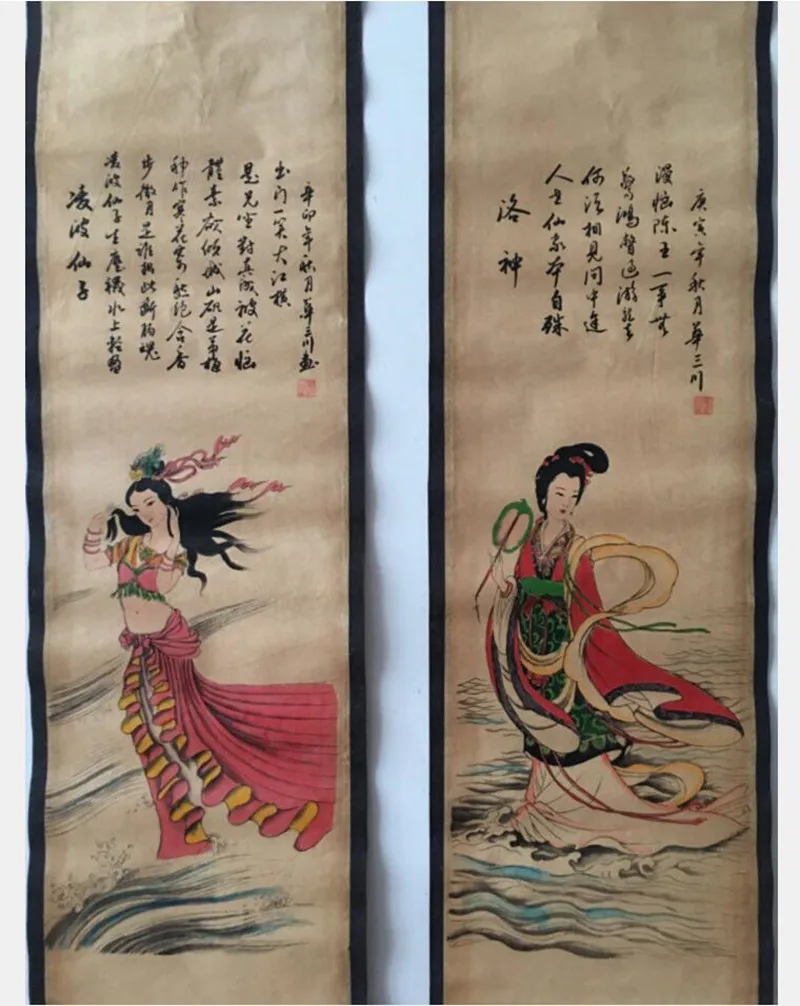 凌波仙子
凌波仙子生塵襪水上輕盈
步微月是誰招此斷腸魂
種作寒花寄愁絕含香
體素欲傾城山礬是弟梅
是兄坐對真成被花惱
出门一笑大江橫
辛卯年秋月華三川畫
洛神
人世仙家本自殊
何須相見向中途
驚鴻瞥過游龍去
漫惱陳王一事無
庚寅年秋月華三川